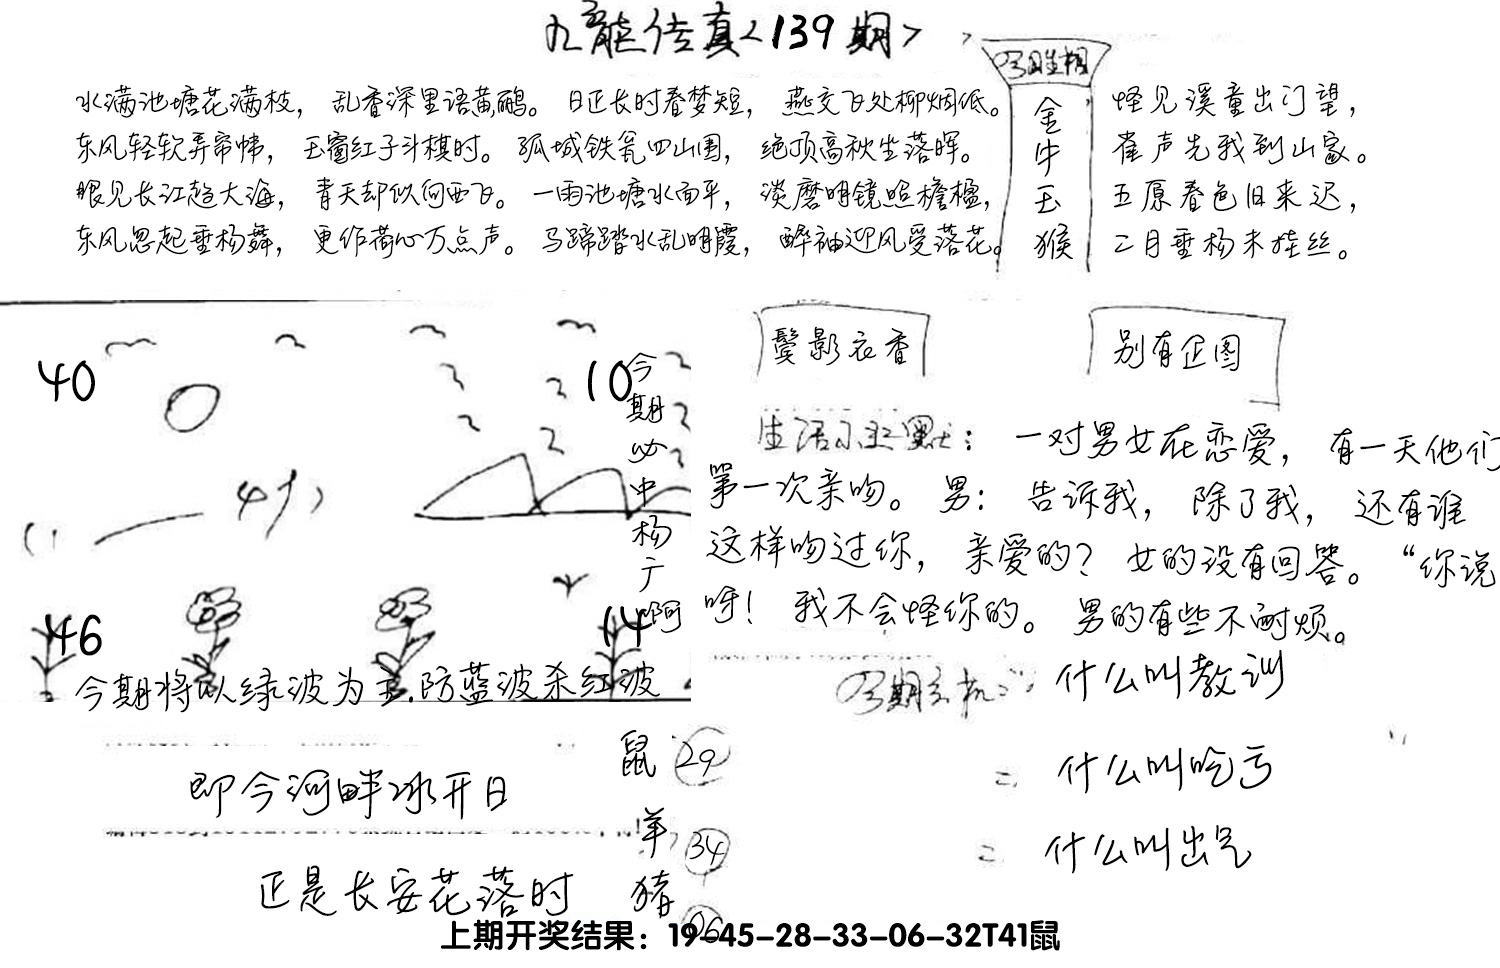 九龙传真<139期>
水满池塘花满枝，乱香深里语黄鹂。日正长时春梦短，燕交飞处柳烟低。
东风轻软弄帘帏，玉窗红子斗棋时。孤城铁瓮四山围，绝顶高秋坐落晖。
眼见长江趋大海，青天却似向西飞。一雨池塘水面平，淡磨明镜照檐楹，
东风忽起垂杨舞，更作荷心万点声。马蹄踏水乱明霞，醉袖迎风受落花。
金
牛
玉
猴
怪见溪童出门望，
雀声先我到山家。
五原春色旧来迟，
二月垂杨未挂丝。
40
10
46
14
今期必中杨广啊
今期将以绿波为主.防蓝波杀红波
鬓影衣香
别有企图
生活小幽默：一对男女在恋爱，有一天他们
第一次亲吻。男：告诉我，除了我，还有谁
这样吻过你，亲爱的？女的没有回答。“你说
呀！我不会怪你的。男的有些不耐烦。
什么叫教训
什么叫吃亏
什么叫出气
即今河畔冰开日
正是长安花落时
鼠 29
羊 34
猪 06
上期开奖结果：19-45-28-33-06-32T41鼠